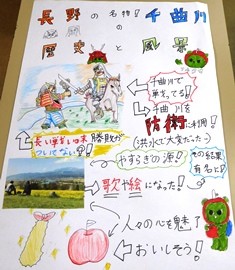 長野の名物！千曲川
の
歴史と風景
千曲川で
戦ってる！
千曲川を
防術に利用！
(洪水で大変だった…)
長い戦いの末 勝敗が
ついてない！
やすらぎの源！
その結果
有名に！
歌や絵になった！
人々の心を魅了
おいしそう！